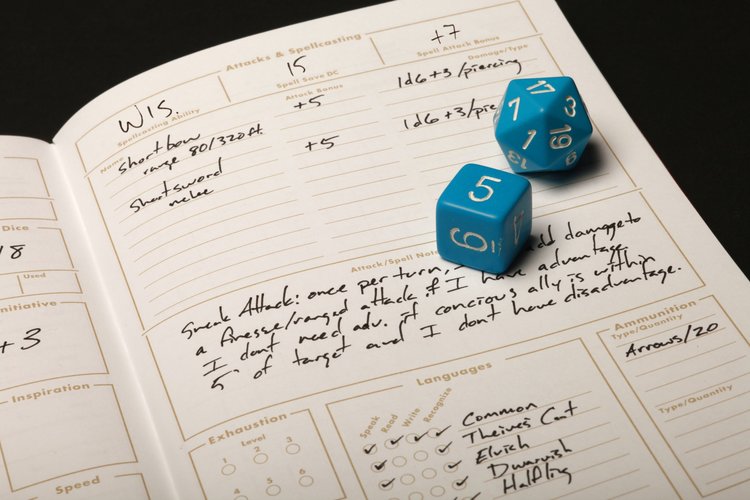 Attacks & Spellcasting
WIS.
15
+7
Spellcasting Ability
Spell Save DC
Spell Attack Bonus
Name
Attack Bonus
Damage/Type
shortbow
+5
1d6+3/piercing
range 80/320ft.
shortsword
+5
1d6+3/pie
melee
Attack/Spell Not
Sneak Attack: once per turn, add damage to
a finesse/ranged attack if I have advantage.
I dont need adv. if concious ally is within
5' of target and I dont have disadvantage.
Dice
/8
Used
nitiative
+3
Inspiration
Speed
Exhaustion
Level
1 2 3
4 5 6
Languages
Speak
Read
Write
Recognize
Common
Theives Cant
Elvish
Dwarvish
Halfling
Ammunition
Type/Quantity
Arrows/20
Type/Quantity
17
7
3
1
19
13
6
5
6
4